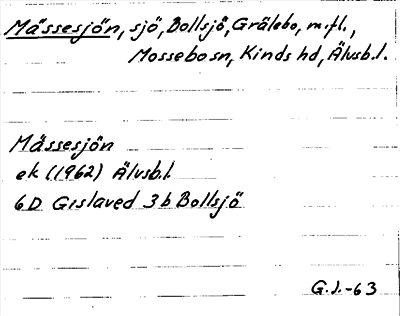 Mässesjön, sjö, Bollsjö, Grälebo, m.fl.,
Mossebo sn, Kinds hd, Älvsb.l.
Mässesjön
ek (1962) Älvsb.l.
6D Gislaved 3b Bollsjö
G.J.-63